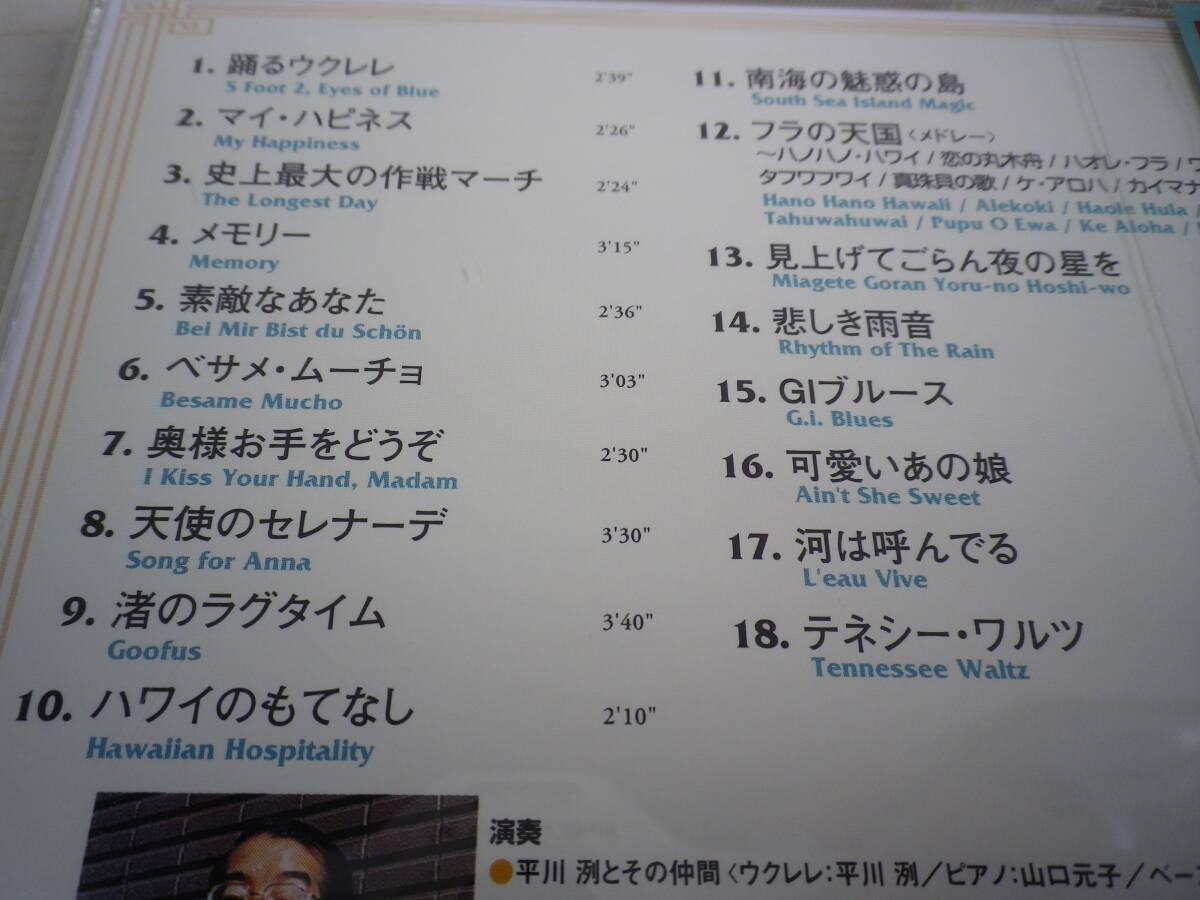 1. 踊るウクレレ 2'39"
5 Foot 2, Eyes of Blue
2. マイ・ハピネス 2'26"
My Happiness
3. 史上最大の作戦マーチ 2'24"
The Longest Day
4. メモリー 3'15"
Memory
5. 素敵なあなた 2'36"
Bei Mir Bist du Schön
6. ベサメ・ムーチョ 3'03"
Besame Mucho
7. 奥様お手をどうぞ 2'30"
I Kiss Your Hand, Madam
8. 天使のセレナーデ 3'30"
Song for Anna
9. 渚のラグタイム 3'40"
Goofus
10. ハワイのもてなし 2'10"
Hawaiian Hospitality
11. 南海の魅惑の島
South Sea Island Magic
12. フラの天国〈メドレー〉
〜ハノハノ・ハワイ / 恋の丸木舟 / ハオレ・フラ /
タフワフワイ / 真珠貝の歌 / ケ・アロハ / カイマナ
Hano Hano Hawaii / Alekoki / Haole Hula /
Tahuwahuwai / Pupu O Ewa / Ke Aloha /
13. 見上げてごらん夜の星を
Miagete Goran Yoru-no Hoshi-wo
14. 悲しき雨音
Rhythm of The Rain
15. GIブルース
G.i. Blues
16. 可愛いあの娘
Ain't She Sweet
17. 河は呼んでる
L'eau Vive
18. テネシー・ワルツ
Tennessee Waltz
演奏
●平川 洌とその仲間〈ウクレレ:平川 洌／ピアノ:山口元子／ベー